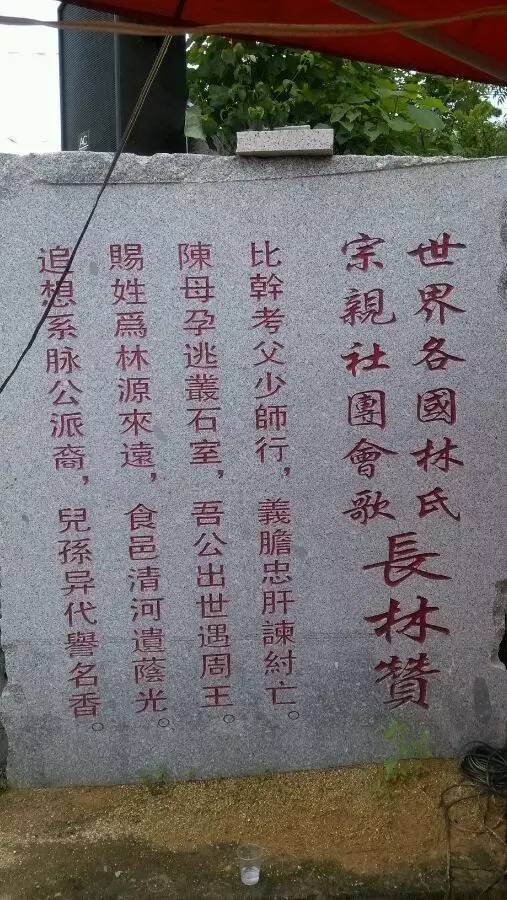 世界各國林氏
宗親社團會歌
長林贊
比幹考父少師行，義膽忠肝諫紂亡。
陳母孕逃叢石室，吾公出世遇周王。
賜姓爲林源來遠，食邑清河遺蔭光。
追想系脉公派裔，兒孫异代譽名香。